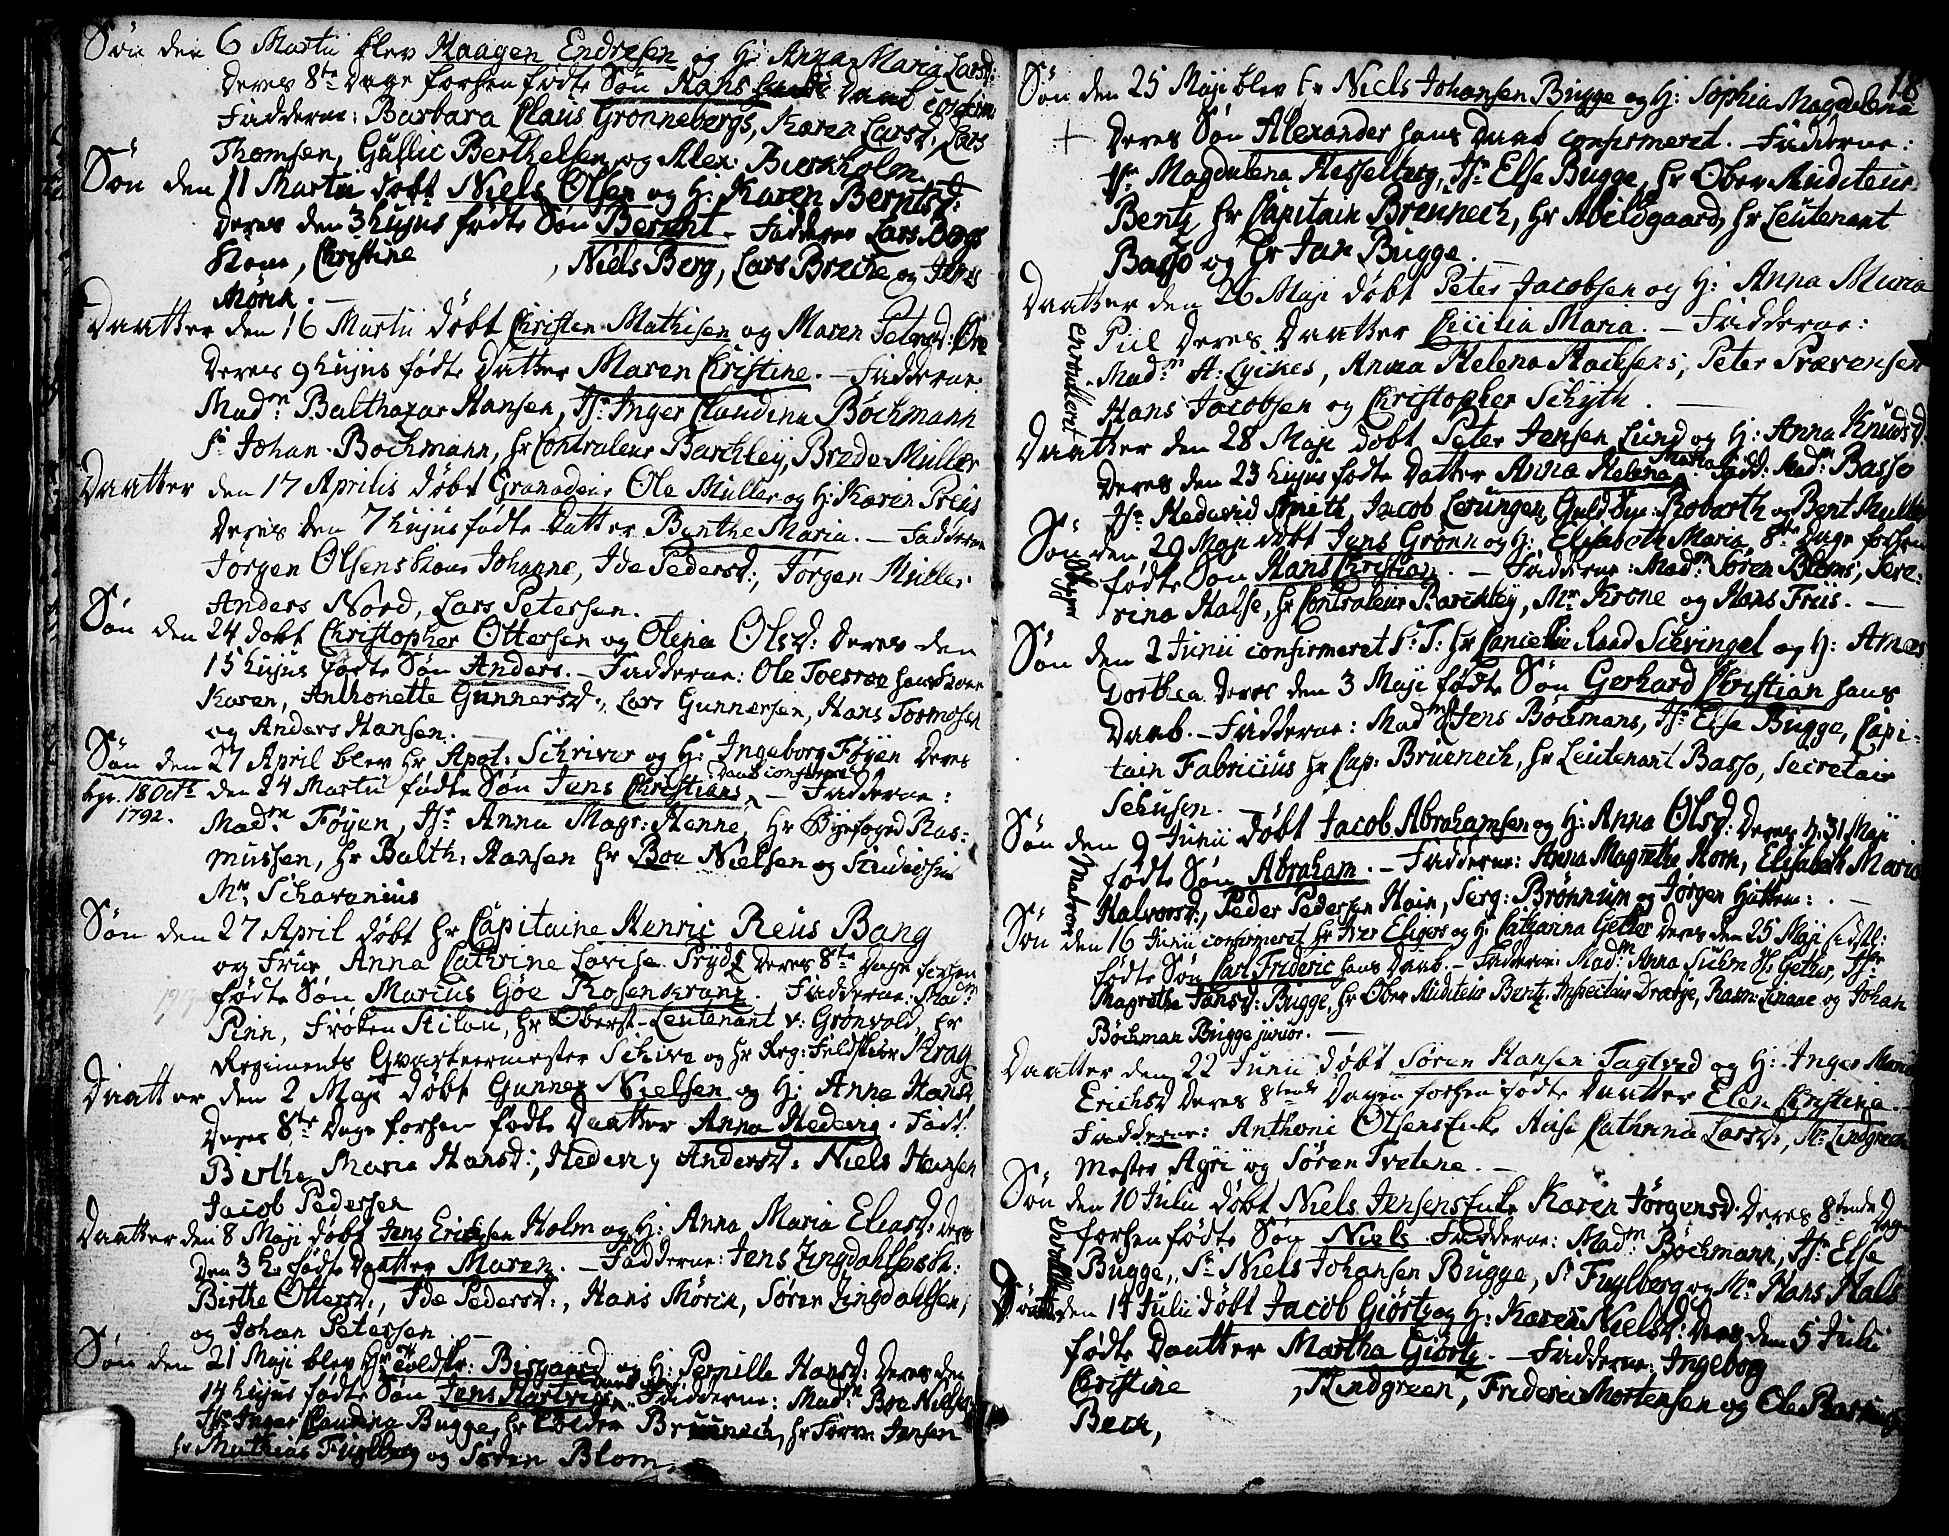 Søn den 6 Martii blev Haagen Endresen og H: Anna Maria Larsd:
Deres 8te Dage forhen fødte Søn Hans Daab confirm
Fadderne: Barbara Claus Grønnebergs, Karen Larsd:, Lars
Thomsen, Gullic Berthelsen og Alex: Burkholm.
Søn den 11 Martii døbt Niels Olsen og H: Karen Berntsd:
Deres den 3 hujus fødte Søn Berent - Fadderne Lars Bergs
Kone, Christine , Niels Berg, Lars Breche og Jens
Mørch. -
Daatter den 16 Martii døbt Christen Mathisen og Maren Petersd:
Deres 9 hujus fødte Datter Maren Christine. - Fadderne
Madm Balthazar Hansen, Jfr Inger Claudina Bøchmann
Sr Johan Bochmann, Hr Controleur Barchley, Brede Muller
Daatter den 17 Aprilis døbt Granadeur Ole Müller og H: Karen Preus
Deres den 7 hujus fødte Datter Berthe Maria. - Fadderne
Jørgen Olsens Kone Johanne, Ide Pedersd:, Jørgen Muller
Anders Nord, Lars Petersen.
Søn den 24 døbt Christopher Ottersen og Olena Olsd: Deres den
15 hujus fødte Søn Anders. - Fadderne: Ole Toesroe hans Kone
Karen, Anthonette Gunnersd:, Lars Gunnersen, Hans Tormosen
og Anders Hansen. -
Søn den 27 April blev Hr Apot: Schriver og H: Ingeborg Føyen Deres
Daab confirm
bgr. 18 Octb. den 24 Martii fødte Søn Jens Christians - Fadderne:
1792.
Madm Føyen, Jfr Anna Magr: Henne, Hr Byefoged Ras-
mussen, Hr Balth: Hansen Hr Boe Nielsen og Studiosus
Mr Schavenius
Søn den 27 April døbt Hr Capitaine Henric Reus Bang
og Frue Anna Cathrine Lovise Prydz Deres 8te Dage forhen
fødte Søn Marius Goe Rosenkranz. Fadderne: Madm
Pinn, Frøken Stilou, Hr Oberst-Leutenant v: Grønvold, Hr
Regiments Qvarteermester Schive og Hr Reg: Feldskier Krag
Daatter den 2 Maji døbt Gunner Nielsen og H: Anne Hansd
Deres 8te Dage forhen fødte Daatter Anna Hedevig. Fadd:
Berthe Maria Hansd:, Hedevig Andersd: Niels Hansen
Jacob Pedersen
Daatter den 8 Maji døbt Jens Erichsen Holm og H: Anna Maria Eliasd: Deres
den 3 h: fødte Daatter Maren. - Fadderne: Jens Lingdahlsens K:
Birthe Ottersd:, Ide Pedersd:, Hans Mørch, Søren Lingdahlsen,
og Johan Petersen. -
Søn den 21 Maji blev Hr Toldskr: Bisgaard og H: Pernille Hansd: Deres den
14 hujus fødte Søn Jens Hartvigs Daab Fadderne: Madm Boe Nielsen
Jfr Inger Claudina Bugge, Hr Tolder Bruenech, Hr Sørren Jensen
Sr Mathias Fuglberg og Søren Blom.
18
Søn den 25 Maji blev Sr Niels Johansen Bugge og H: Sophia Magdalena
+ Deres Søn Alexander hans Daab confirmeret. - Fadderne:
Jfr Magdalena Hesselberg, Jfr Else Bugge, Hr Ober Auditeur
Bentz Hr Capitain Bruenech, Hr Abildgaard, Hr Leutenant
Basso og Hr Jan Bugge. -
Daatter den 26 Maji døbt Peter Jacobsen og H: Anna Maria
Piil Deres Daatter Cicilia Maria. - Fadderne:
Madm A: Lyckes, Anna Helena Hachsens, Peter Prævensen
Hans Jacobsen og Christopher Schyth.
Enroulleret
Daatter den 28 Maji døbt Peter Jensen Lund og H: Anna Knudsd
Deres den 23 hujus fødte Datter Anna Helena Maria Fadd: Madm Basso
Jfr Hedevid Smith, Jacob Lerungen, Guld Sm: Robarth og Bent Muller
Søn den 29 Maji døbt Jens Grønn og H: Elisabeth Maria 8te Dage forhen
fødte Søn Hans Christian. - Fadderne: Madm Søren Bloms, Sere-
rina Halse, Hr Controleur Barchley, Mr Krone og Hans Friis. -
Søn den 2 Junii confirmeret S: T: Hr Cancellie Raad Schvingel og H: Amas
Dorthea Deres den 3 Maji fødte Søn Gerhard Christian hans
Daab. - Fadderne: Madm Jens Bøchmans, Jfr Else Bugge, Capi-
tain Fabricius Hr Cap: Bruenech, Hr Leutenant Basso, Secretair
Schusen. -
Søn den 9 Junii døbt Jacob Abrahamsen og H: Anna Olsd: Deres d: 31 Maji
fødte Søn Abraham. - Fadderne: Anna Magrethe Horn, Elisabeth Maria
Halvorsd:, Peder Pedersen Hain, Serg: Brønnum og Jørgen Huttem: -
Matros
Søn den 16 Junii confirmeret Hr Iver Eligers og H: Catharina Getter Deres den 25 Maji sidstl:
fødte Søn Carl Frideric hans Daab. - Fadderne: Madm Anna Suhm Jfr Getter, Jfr
Magrethe Jansd: Bugge, Hr Ober Auditeur Bentz, Inspecteur Dræbye, Rasm: Linaae og Johan
Bøchman Bugge junior. -
Daatter den 22 Junii døbt Søren Hansen Tagtved og H: Inger Maria
Erichsd Deres 8tende Dagen forhen fødte Daatter Elen Christina. -
Fadderne: Anthoni Ottsens Enke Aase Cathrina Larsd:, Mr Lindgreen
Mester Ayri og Søren Tvetene. -
Søn den 10 Julii døbt Niels Jensens Enke Karen Jørgensd: Deres 8tende Dage
forhen fødte Søn Niels Fadderne: Madm Bøchmann, Jfr Else
Bugge, Sr Niels Johansen Bugge, Sr Fuglberg og Mr Hans Hals
Daatter den 14 Julii døbt Jacob Giørtz og H: Karen Nielsd: Deres den 5 Julii
fødte Daatter Martha Giørtz. - Fadderne: Ingeborg
Christine , Lindgreen, Frederic Mortensen og Ole Rasmusen
Bech,